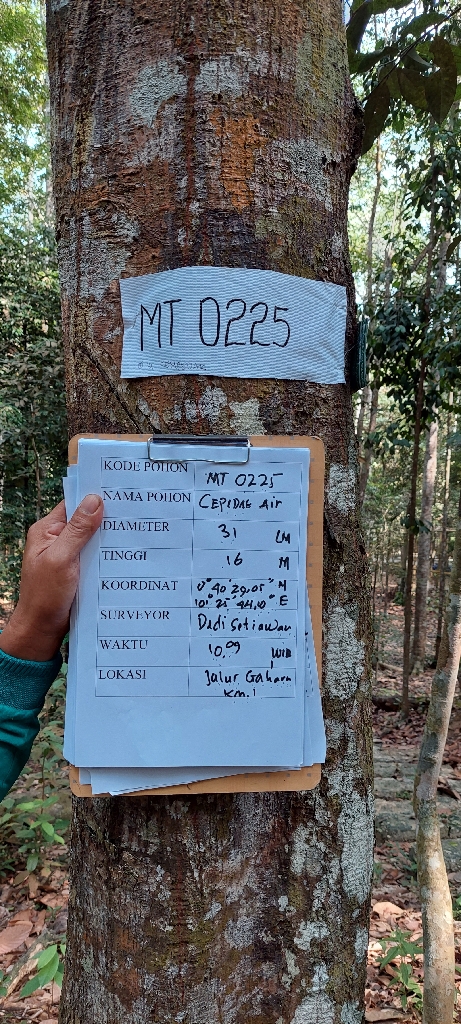 MT 0225
KODE POHON MT 0225
NAMA POHON CEPIDAG Air
DIAMETER 31 CM
TINGGI 16 M
KOORDINAT 0° 40' 29.05" N
101° 25' 44.10" E
SURVEYOR Dedi Setiawan
WAKTU 10.09 WIB
LOKASI Jalur Gaharu
KM.1